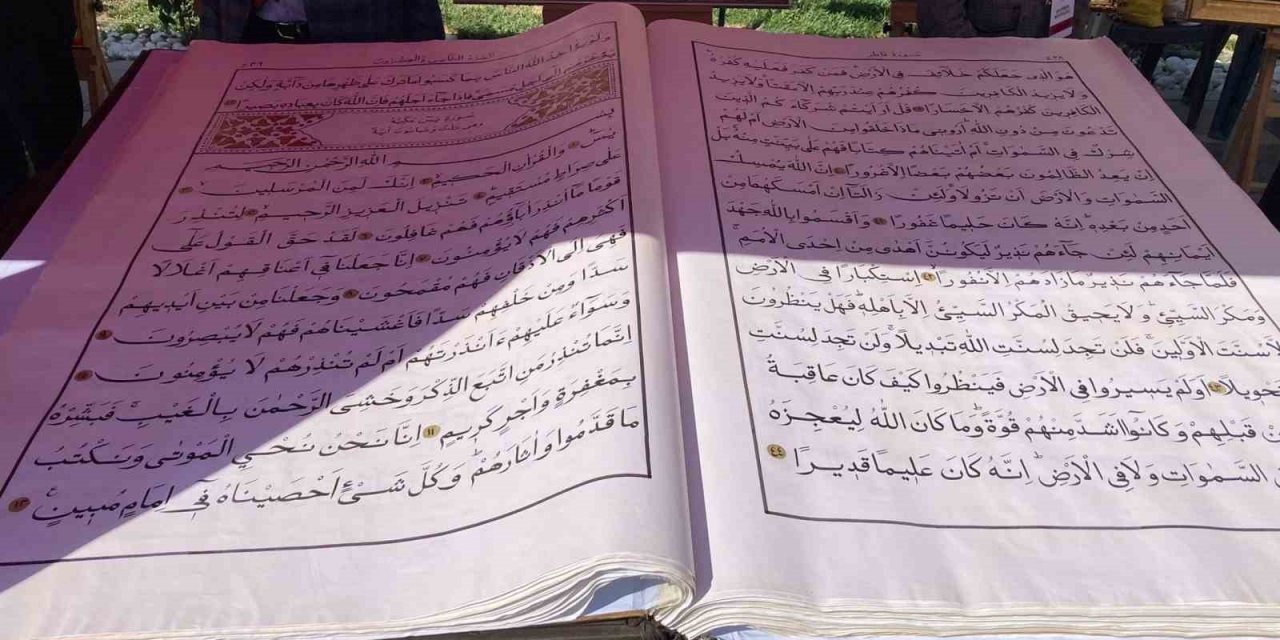 سورة فاطر
هُوَ الَّذِي جَعَلَكُمْ خَلَائِفَ فِي الْاَرْضِ فَمَنْ كَفَرَ فَعَلَيْهِ كُفْرُهُ
وَلَا يَزِيدُ الْكَافِرِينَ كُفْرُهُمْ عِنْدَ رَبِّهِمْ اِلَّا مَقْتًا وَلَا يَزِيدُ
الْكَافِرِينَ كُفْرُهُمْ اِلَّا خَسَارًا قُلْ اَرَاَيْتُمْ شُرَكَاءَكُمُ الَّذِينَ
تَدْعُونَ مِنْ دُونِ اللّٰهِ اَرُونِي مَاذَا خَلَقُوا مِنَ الْاَرْضِ اَمْ لَهُمْ
شِرْكٌ فِي السَّمٰوَاتِ اَمْ اٰتَيْنَاهُمْ كِتَابًا فَهُمْ عَلٰى بَيِّنَتٍ مِنْهُ بَلْ
اِنْ يَعِدُ الظَّالِمُونَ بَعْضُهُمْ بَعْضًا اِلَّا غُرُورًا اِنَّ اللّٰهَ يُمْسِكُ
السَّمٰوَاتِ وَالْاَرْضَ اَنْ تَزُولَا وَلَئِنْ زَالَتَا اِنْ اَمْسَكَهُمَا مِنْ
اَحَدٍ مِنْ بَعْدِهِ اِنَّهُ كَانَ حَلِيمًا غَفُورًا وَاَقْسَمُوا بِاللّٰهِ جَهْدَ
اَيْمَانِهِمْ لَئِنْ جَاءَهُمْ نَذِيرٌ لَيَكُونُنَّ اَهْدٰى مِنْ اِحْدَى الْاُمَمِ
فَلَمَّا جَاءَهُمْ نَذِيرٌ مَا زَادَهُمْ اِلَّا نُفُورًا ٤٢ اِسْتِكْبَارًا فِي الْاَرْضِ
وَمَكْرَ السَّيِّئِ وَلَا يَحِيقُ الْمَكْرُ السَّيِّئُ اِلَّا بِاَهْلِهِ فَهَلْ يَنْظُرُونَ
اِلَّا سُنَّتَ الْاَوَّلِينَ فَلَنْ تَجِدَ لِسُنَّتِ اللّٰهِ تَبْدِيلًا وَلَنْ تَجِدَ لِسُنَّتِ
تَحْوِيلًا ٤٣ اَوَلَمْ يَسِيرُوا فِي الْاَرْضِ فَيَنْظُرُوا كَيْفَ كَانَ عَاقِبَةُ
مِنْ قَبْلِهِمْ وَكَانُوا اَشَدَّ مِنْهُمْ قُوَّةً وَمَا كَانَ اللّٰهُ لِيُعْجِزَهُ
السَّمٰوَاتِ وَلَا فِي الْاَرْضِ اِنَّهُ كَانَ عَلِيمًا قَدِيرًا ٤٤
وَلَوْ يُؤَاخِذُ اللّٰهُ النَّاسَ بِمَا كَسَبُوا مَا تَرَكَ عَلٰى ظَهْرِهَا مِنْ دَابَّةٍ وَلٰكِنْ
يُؤَخِّرُهُمْ اِلٰى اَجَلٍ مُسَمًّى فَاِذَا جَاءَ اَجَلُهُمْ فَاِنَّ اللّٰهَ كَانَ بِعِبَادِهِ بَصِيرًا
سورة يس مكية
وهي ثلاث وثمانون آية
بِسْمِ اللّٰهِ الرَّحْمٰنِ الرَّحِيمِ
يٰسٓ وَالْقُرْاٰنِ الْحَكِيمِ اِنَّكَ لَمِنَ الْمُرْسَلِينَ
عَلٰى صِرَاطٍ مُسْتَقِيمٍ تَنْزِيلَ الْعَزِيزِ الرَّحِيمِ لِتُنْذِرَ
قَوْمًا مَا اُنْذِرَ اٰبَاؤُهُمْ فَهُمْ غَافِلُونَ لَقَدْ حَقَّ الْقَوْلُ عَلٰى
اَكْثَرِهِمْ فَهُمْ لَا يُؤْمِنُونَ اِنَّا جَعَلْنَا فِي اَعْنَاقِهِمْ اَغْلَالًا
فَهِيَ اِلَى الْاَذْقَانِ فَهُمْ مُقْمَحُونَ ٨ وَجَعَلْنَا مِنْ بَيْنِ اَيْدِيهِمْ
سَدًّا وَمِنْ خَلْفِهِمْ سَدًّا فَاَغْشَيْنَاهُمْ فَهُمْ لَا يُبْصِرُونَ ٩
وَسَوَاءٌ عَلَيْهِمْ ءَاَنْذَرْتَهُمْ اَمْ لَمْ تُنْذِرْهُمْ لَا يُؤْمِنُونَ ١٠
اِنَّمَا تُنْذِرُ مَنِ اتَّبَعَ الذِّكْرَ وَخَشِيَ الرَّحْمٰنَ بِالْغَيْبِ فَبَشِّرْهُ
بِمَغْفِرَةٍ وَاَجْرٍ كَرِيمٍ ١١ اِنَّا نَحْنُ نُحْيِ الْمَوْتٰى وَنَكْتُبُ
مَا قَدَّمُوا وَاٰثَارَهُمْ وَكُلَّ شَيْءٍ اَحْصَيْنَاهُ فِي اِمَامٍ مُبِينٍ ١٢